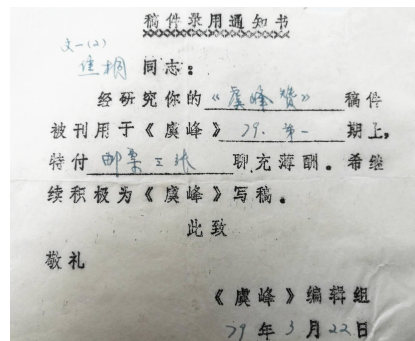 稿件录用通知书
文一(2)
焦桐 同志：
经研究你的《虞峰赞》稿件
被刊用于《虞峰》79.第一期上，
特付邮票三张聊充薄酬。希继
续积极为《虞峰》写稿。
此致
敬礼
《虞峰》编辑组
79年3月22日